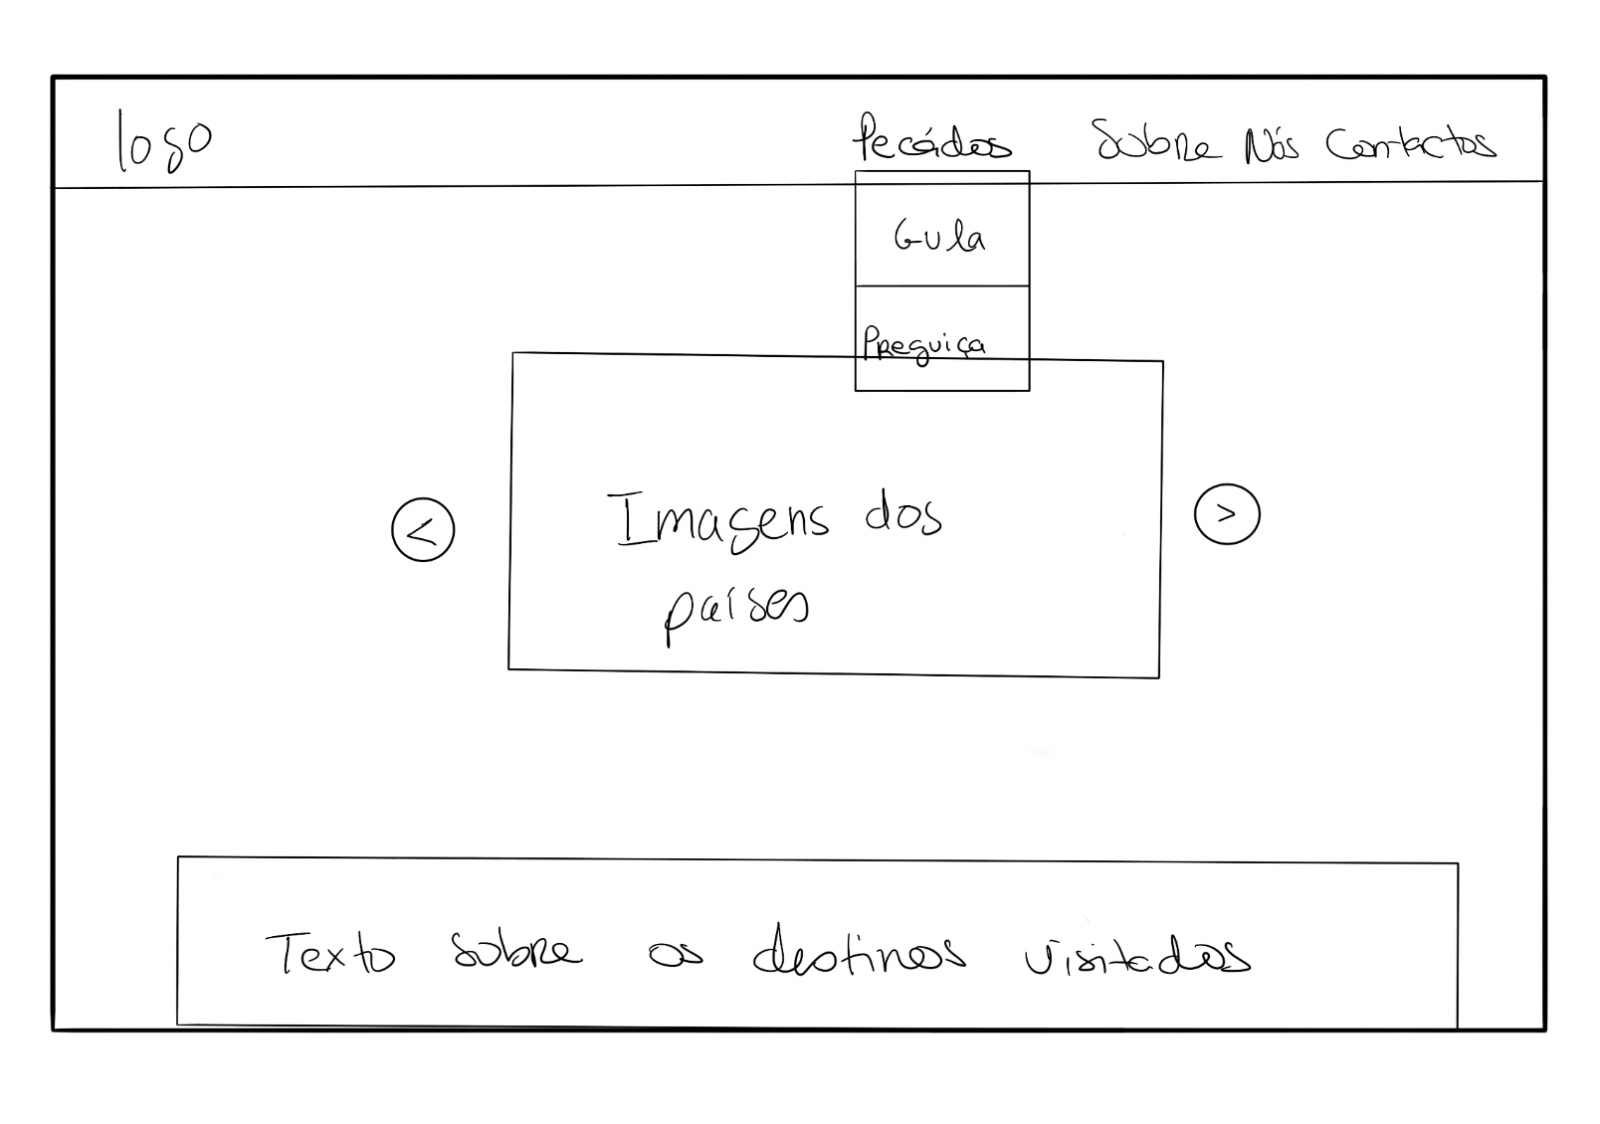 logo
Pecádos Sobre Nós Contactos
Gula
Preguiça
<
Imagens dos
países
>
Texto sobre os destinos visitados